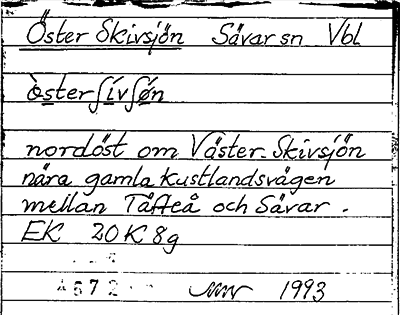 Öster Skivsjön Sävar sn Vbl
òsterʃivʃøn
nordöst om Väster-Skivsjön
nära gamla kustlandsvägen
mellan Täfteå och Sävar.
EK 20K 8g
A672
1993